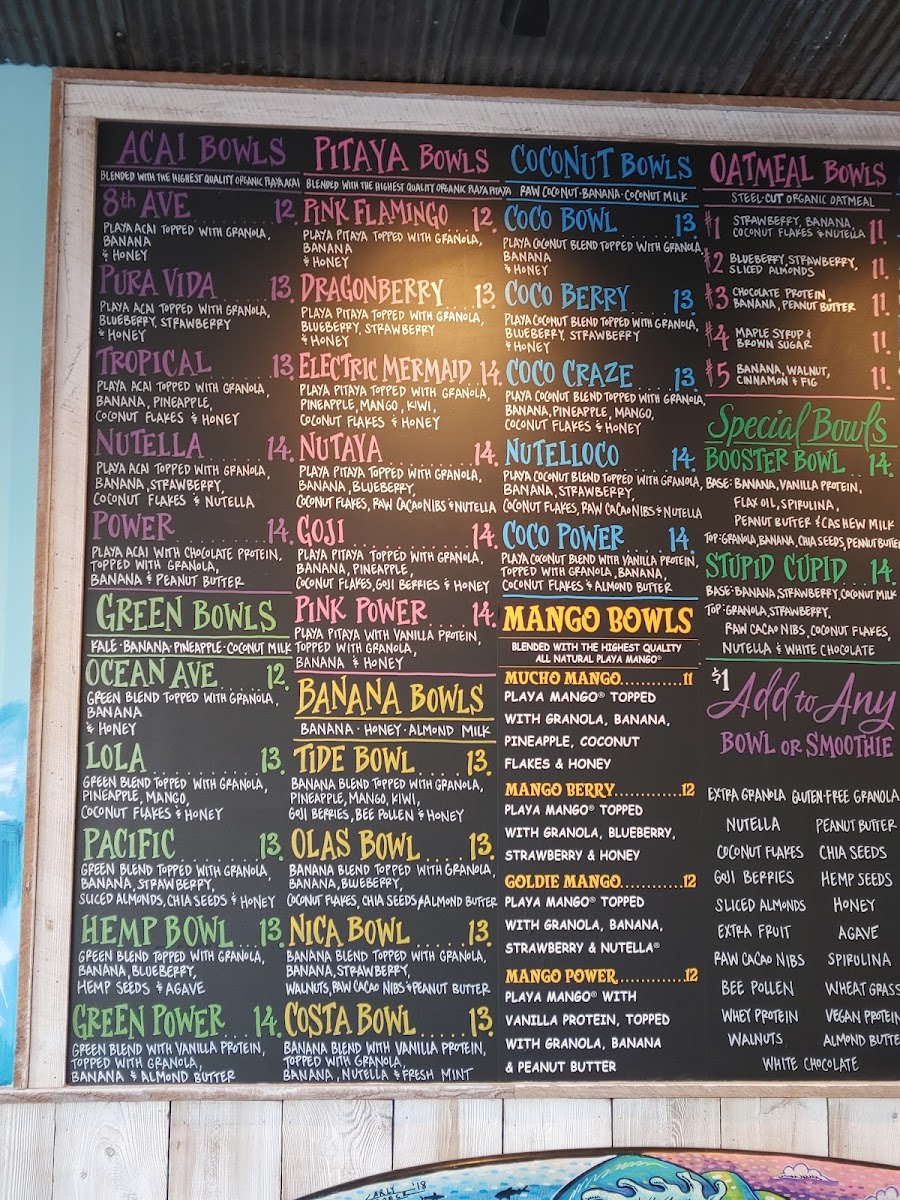 ACAI BOWLS
BLENDED WITH THE HIGHEST QUALITY ORGANIC PLAYA ACAI
8th AVE 12.
PLAYA ACAI TOPPED WITH GRANOLA,
BANANA
& HONEY
PURA VIDA 13.
PLAYA ACAI TOPPED WITH GRANOLA,
BLUEBERRY, STRAWBERRY
& HONEY
TROPICAL 13.
PLAYA ACAI TOPPED WITH GRANOLA,
BANANA, PINEAPPLE,
COCONUT FLAKES & HONEY
NUTELLA 14.
PLAYA ACAI TOPPED WITH GRANOLA,
BANANA, STRAWBERRY,
COCONUT FLAKES & NUTELLA
POWER 14.
PLAYA ACAI WITH CHOCOLATE PROTEIN,
TOPPED WITH GRANOLA,
BANANA & PEANUT BUTTER
GREEN BOWLS
KALE · BANANA · PINEAPPLE · COCONUT MILK
OCEAN AVE 12.
GREEN BLEND TOPPED WITH GRANOLA,
BANANA
& HONEY
LOLA 13.
GREEN BLEND TOPPED WITH GRANOLA,
PINEAPPLE, MANGO,
COCONUT FLAKES & HONEY
PACIFIC 13.
GREEN BLEND TOPPED WITH GRANOLA,
BANANA, STRAWBERRY,
SLICED ALMONDS, CHIA SEEDS & HONEY
HEMP BOWL 13.
GREEN BLEND TOPPED WITH GRANOLA,
BANANA, BLUEBERRY,
HEMP SEEDS & AGAVE
GREEN POWER 14.
GREEN BLEND WITH VANILLA PROTEIN,
TOPPED WITH GRANOLA,
BANANA & ALMOND BUTTER
PITAYA BOWLS
BLENDED WITH THE HIGHEST QUALITY ORGANIC PLAYA PITAYA
PINK FLAMINGO 12.
PLAYA PITAYA TOPPED WITH GRANOLA,
BANANA
& HONEY
DRAGONBERRY 13
PLAYA PITAYA TOPPED WITH GRANOLA,
BLUEBERRY, STRAWBERRY
& HONEY
ELECTRIC MERMAID 14.
PLAYA PITAYA TOPPED WITH GRANOLA,
PINEAPPLE, MANGO, KIWI,
COCONUT FLAKES & HONEY
NUTAYA 14.
PLAYA PITAYA TOPPED WITH GRANOLA,
BANANA, BLUEBERRY,
COCONUT FLAKES, RAW CACAO NIBS & NUTELLA
GOJI 14.
PLAYA PITAYA TOPPED WITH GRANOLA,
BANANA, PINEAPPLE,
COCONUT FLAKES, GOJI BERRIES & HONEY
PINK POWER 14.
PLAYA PITAYA WITH VANILLA PROTEIN,
TOPPED WITH GRANOLA,
BANANA & HONEY
BANANA BOWLS
BANANA · HONEY · ALMOND MILK
TIDE BOWL 13.
BANANA BLEND TOPPED WITH GRANOLA,
PINEAPPLE, MANGO, KIWI,
GOJI BERRIES, BEE POLLEN & HONEY
OLAS BOWL 13.
BANANA BLEND TOPPED WITH GRANOLA,
BANANA, BLUEBERRY,
COCONUT FLAKES, CHIA SEEDS & ALMOND BUTTER
NICA BOWL 13.
BANANA BLEND TOPPED WITH GRANOLA,
BANANA, STRAWBERRY,
WALNUTS, RAW CACAO NIBS & PEANUT BUTTER
COSTA BOWL 13.
BANANA BLEND WITH VANILLA PROTEIN,
TOPPED WITH GRANOLA,
BANANA, NUTELLA & FRESH MINT
COCONUT BOWLS
RAW COCONUT · BANANA · COCONUT MILK
COCO BOWL 13.
PLAYA COCONUT BLEND TOPPED WITH GRANOLA,
BANANA
& HONEY
COCO BERRY 13.
PLAYA COCONUT BLEND TOPPED WITH GRANOLA,
BLUEBERRY, STRAWBERRY
& HONEY
COCO CRAZE 13
PLAYA COCONUT BLEND TOPPED WITH GRANOLA,
BANANA, PINEAPPLE, MANGO,
COCONUT FLAKES & HONEY
NUTELLOCO 14.
PLAYA COCONUT BLEND TOPPED WITH GRANOLA,
BANANA, STRAWBERRY,
COCONUT FLAKES, RAW CACAO NIBS & NUTELLA
COCO POWER 14.
PLAYA COCONUT BLEND WITH VANILLA PROTEIN,
TOPPED WITH GRANOLA, BANANA,
COCONUT FLAKES & ALMOND BUTTER
MANGO BOWLS
BLENDED WITH THE HIGHEST QUALITY
ALL NATURAL PLAYA MANGO®
MUCHO MANGO............11
PLAYA MANGO® TOPPED
WITH GRANOLA, BANANA,
PINEAPPLE, COCONUT
FLAKES & HONEY
MANGO BERRY............12
PLAYA MANGO® TOPPED
WITH GRANOLA, BLUEBERRY,
STRAWBERRY & HONEY
GOLDIE MANGO............12
PLAYA MANGO® TOPPED
WITH GRANOLA, BANANA,
STRAWBERRY & NUTELLA®
MANGO POWER............12
PLAYA MANGO® WITH
VANILLA PROTEIN, TOPPED
WITH GRANOLA, BANANA
& PEANUT BUTTER
OATMEAL BOWLS
STEEL-CUT ORGANIC OATMEAL
#1 STRAWBERRY, BANANA,
COCONUT FLAKES & NUTELLA 11.
#2 BLUEBERRY, STRAWBERRY,
SLICED ALMONDS 11.
#3 CHOCOLATE PROTEIN,
BANANA, PEANUT BUTTER 11.
#4 MAPLE SYRUP &
BROWN SUGAR 11.
#5 BANANA, WALNUT,
CINNAMON & FIG 11.
Special Bowls
BOOSTER BOWL 14.
BASE: BANANA, VANILLA PROTEIN,
FLAX OIL, SPIRULINA,
PEANUT BUTTER & CASHEW MILK
TOP: GRANOLA, BANANA, CHIA SEEDS, PEANUT BUTTE
STUPID CUPID 14.
BASE: BANANA, STRAWBERRY, COCONUT MILK
TOP: GRANOLA, STRAWBERRY,
RAW CACAO NIBS, COCONUT FLAKES,
NUTELLA & WHITE CHOCOLATE
$1 Add to Any
BOWL OR SMOOTHIE
EXTRA GRANOLA GLUTEN-FREE GRANOLA
NUTELLA PEANUT BUTTER
COCONUT FLAKES CHIA SEEDS
GOJI BERRIES HEMP SEEDS
SLICED ALMONDS HONEY
EXTRA FRUIT AGAVE
RAW CACAO NIBS SPIRULINA
BEE POLLEN WHEAT GRASS
WHEY PROTEIN VEGAN PROTEIN
WALNUTS ALMOND BUTTE
WHITE CHOCOLATE